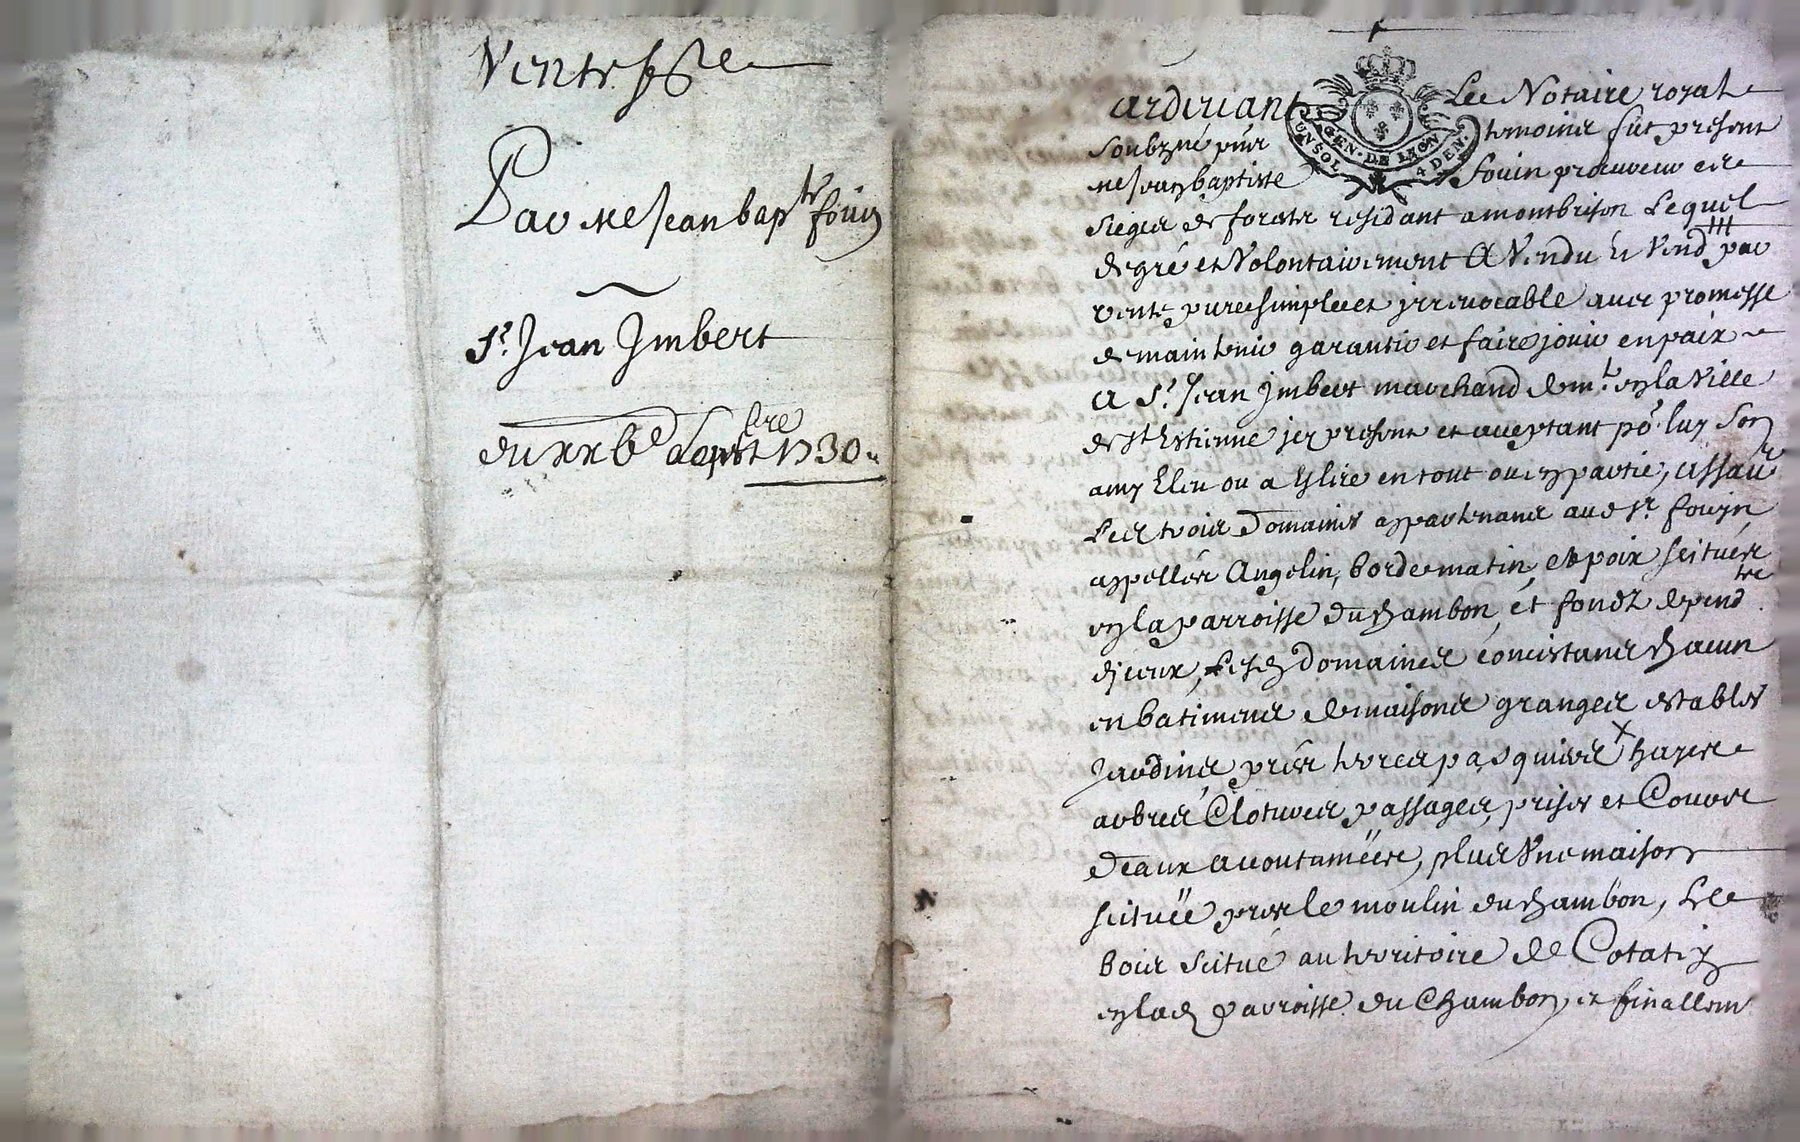 Vente
Par Me Jean bapte fouin
A
Sr. Jean Jmbert
du xxbe Septbre 1730.
Pardevant Le Notaire royal
GEN. DE LYON
UN SOL 4 DEN.
Soubzné pnts temoins fut present
Me Jean baptiste fouin procureur es
sieges de forests residant a montbrison Lequel
de gré et Volontairement A Vendu et Vend par
vente pure simple et jrrevocable avec promesse
de maintenir garantir et faire jouir en paix
A Sr. Jean Jmbert marchand demt. en la Ville
de St Estienne jcy present et aceptant po. luy Son
amy Eleu ou a Eslire en tout ou en partie, assavr
Les trois Domaines appartenans aud Sr. fouin,
appellés Angelin, bordematin, et poix scitués
en la parroisse du chambon, et fondz depend
d'jceux, Lesd Domaines concistans chacun
en batimens de maisons granges estables
Jardins prés terres pasquiers X hayes
arbres Clotures passages, prises et Cours
deaux acoutumées, plus Vne maison
scituée pres le moulin du chambon, Le
bois scitué au territoire de Cotatay
en lad parroisse du Chambon, et finallemt